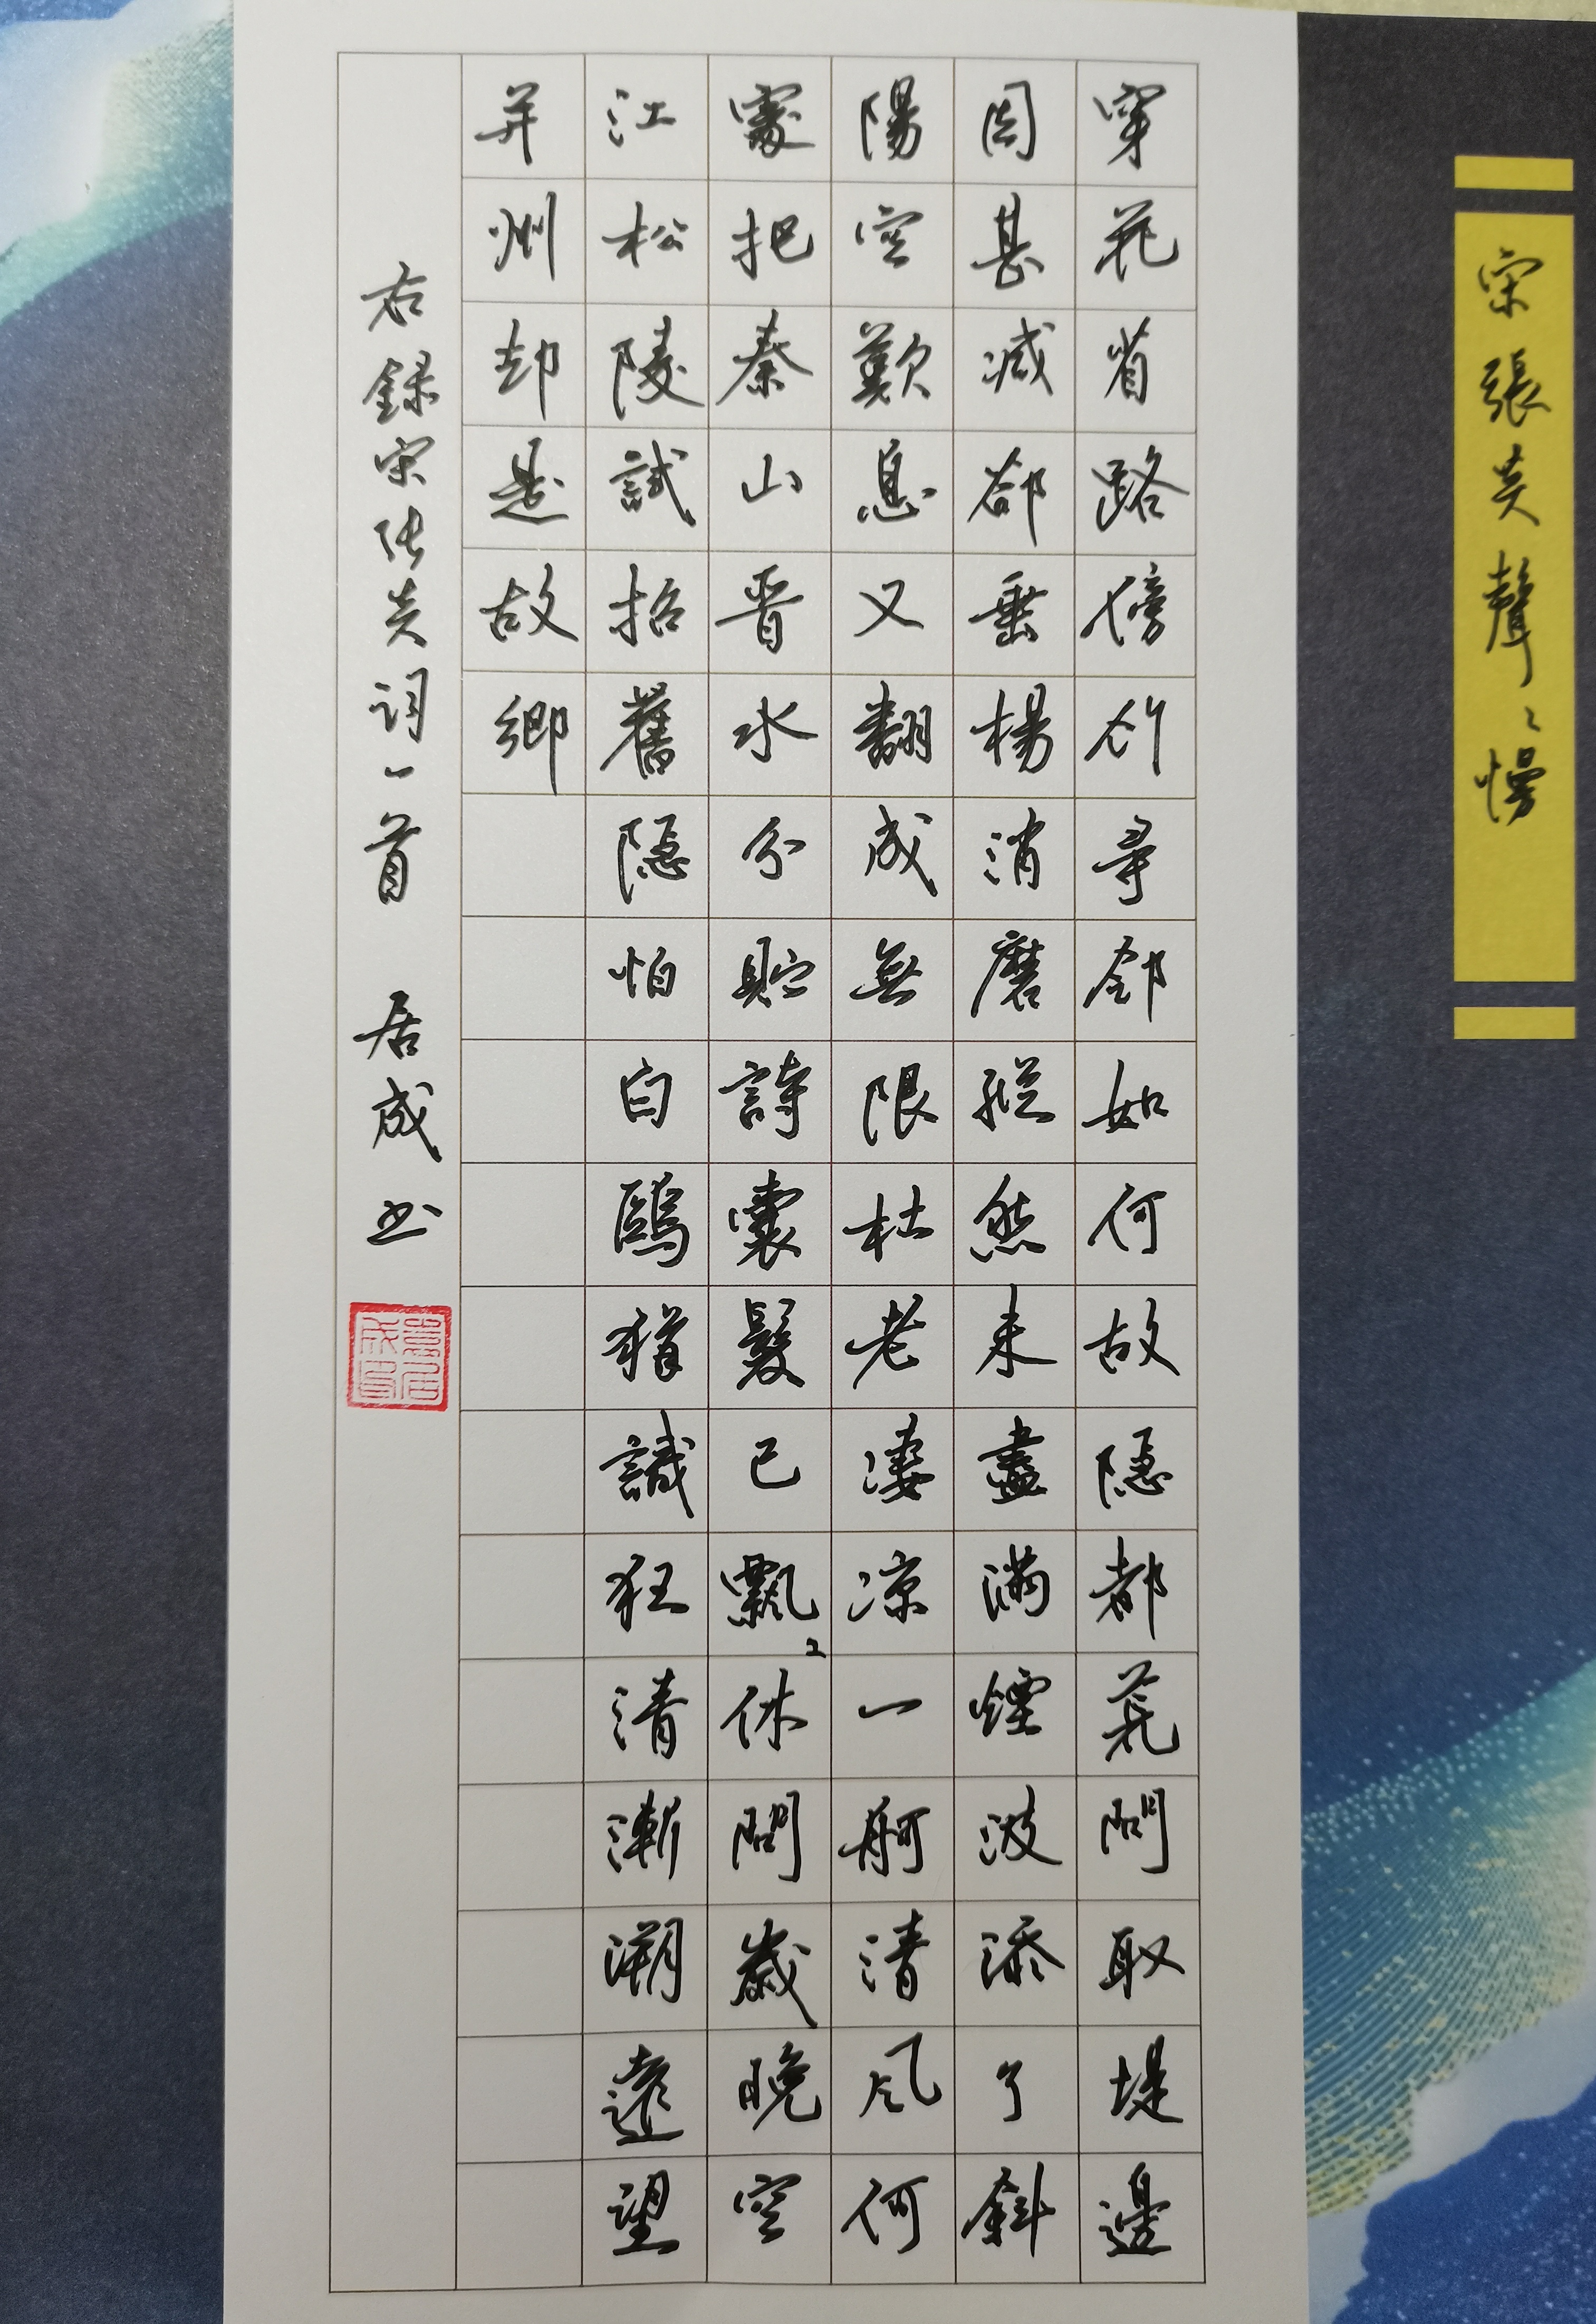 宋張炎聲〻慢
穿花省路傍竹尋邻如何故隱都荒問取堤邊
因甚減卻垂楊消磨縱然未盡滿煙波添了斜
陽空歎息又翻成無限杜老淒涼一舸清風何
處把秦山晉水分貯詩囊髮已飄〻休問歲晚空
江松陵試招舊隱怕白鷗猶識狂清漸溯遠望
并州却是故鄉
右錄宋张炎词一首 居成书